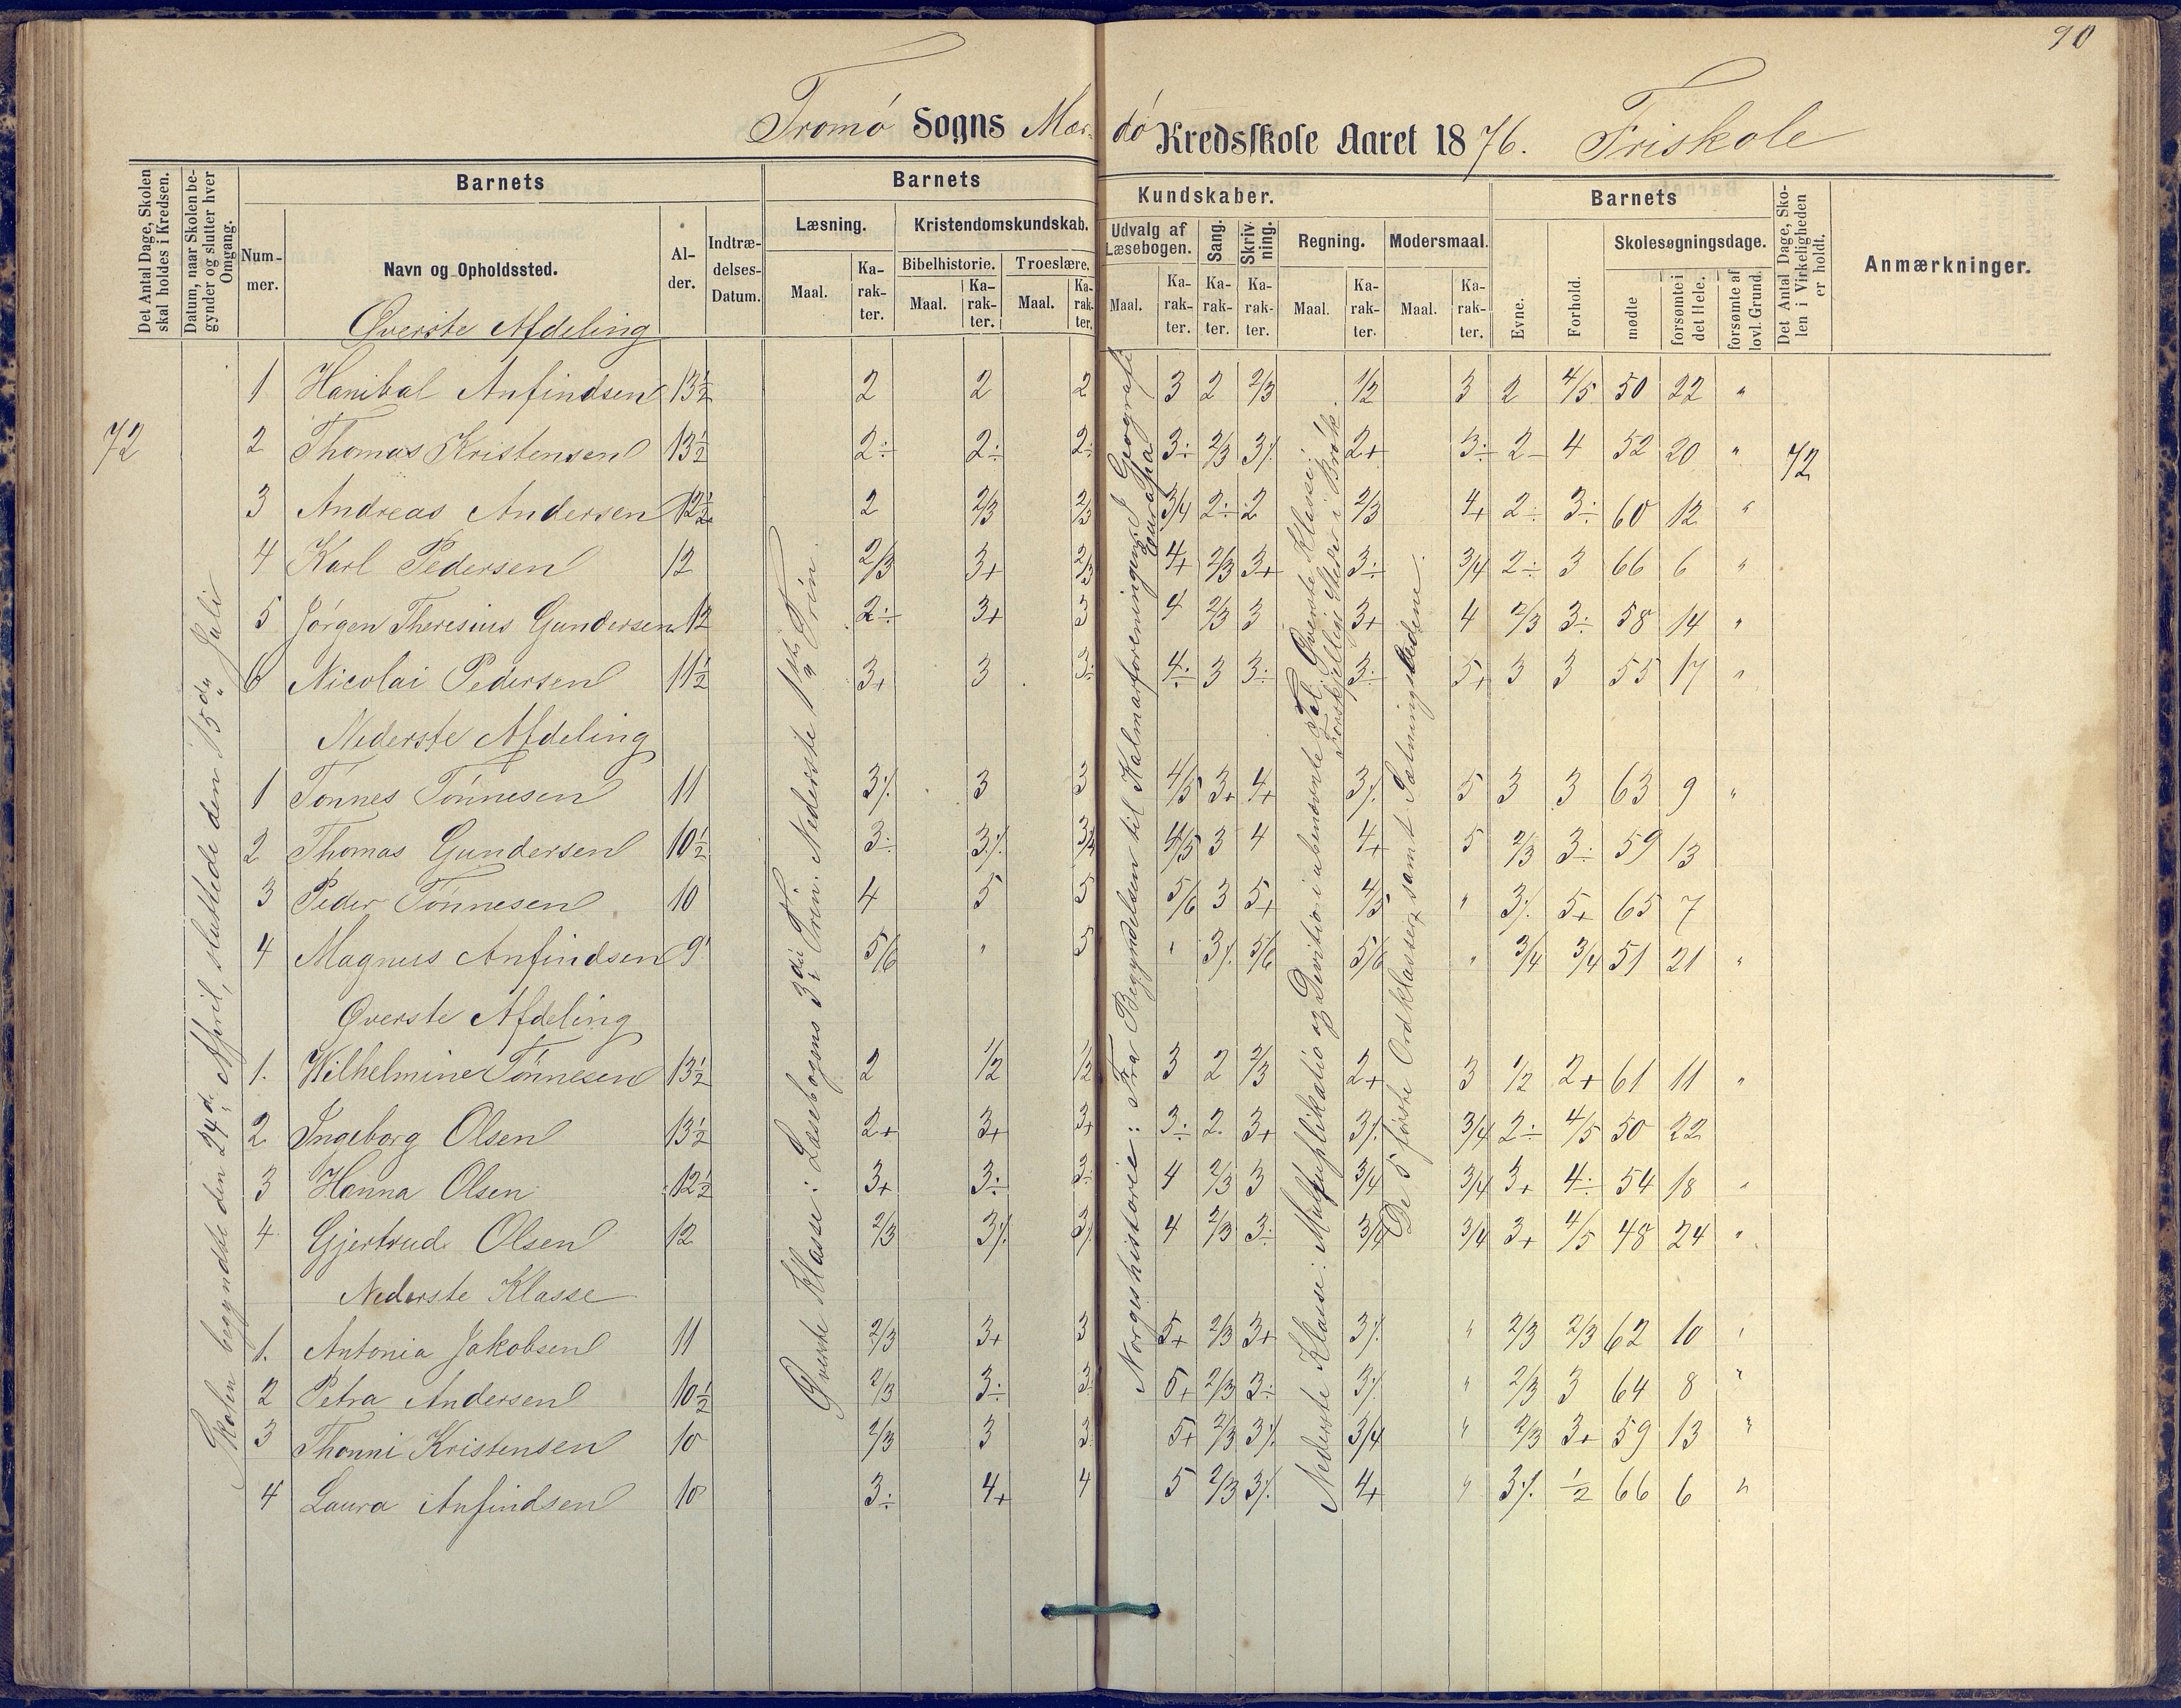 90
Tromø Sogns Mærdø Kredsskole Aaret 1876. Friskole
Det Antal Dage, Skolen skal holdes i Kredsen.
Datum, naar Skolen begynder og slutter hver Omgang.
Barnets
Nummer.
Navn og Opholdssted.
Alder.
Indtrædelses-Datum.
Barnets Kundskaber.
Læsning.
Maal.
Karakter.
Kristendomskundskab.
Bibelhistorie.
Maal.
Karakter.
Troeslære.
Maal.
Karakter.
Udvalg af Læsebogen.
Maal.
Karakter.
Sang.
Karakter.
Skrivning.
Karakter.
Regning.
Maal.
Karakter.
Modersmaal.
Maal.
Karakter.
Barnets
Evne.
Forhold.
Skolesøgningsdage.
mødte
forsømte i det Hele.
forsømte af lovl. Grund.
Det Antal Dage, Skolen i Virkeligheden er holdt.
Anmærkninger.
72
Skolen begyndte den 24de April, sluttede den 15de Juli
Øverste Klasse: Læsebogens 3die Trin. Nederste 1ste Trin.
Norgeshistorie: Fra Begyndelsen til Kalmarforeningen. I Geografi Europa
Nederste Klasse: Multiplikatio og Divitio i ubenævnte Tal. Øverste Klasse: Forskjellige Steder i Brøk.
De 5 første Ordklasser samt Sætningsledene.
72
Øverste Afdeling
1 Hanibal Anfindsen 13½ 2 2 2 3 2 2/3 1/2 3 2 4/5 50 22 "
2 Thomas Kristensen 13½ 2÷ 2÷ 2÷ 3÷ 2/3 3٪ 2+ 3÷ 2- 4 52 20 "
3 Andreas Andersen 12½ 2 2/3 2/3 3/4 2÷ 2 2/3 4+ 2÷ 3÷ 60 12 "
4 Karl Pedersen 12 2/3 3+ 2/3 4+ 2/3 3+ 3÷ 3/4 2÷ 3 66 6 "
5 Jørgen Theresius Gundersen 12 2÷ 3+ 3 4 2/3 3 3+ 4 2/3 3÷ 58 14 "
6 Nicolai Pedersen 11½ 3+ 3 3÷ 4÷ 3 3÷ 3÷ 5+ 3 3 55 17 "
Nederste Afdeling
1 Tønnes Tønnesen 11 3٪ 3 3 4/5 3+ 4+ 3٪ 5 3 3 63 9 "
2 Thomas Gundersen 10½ 3÷ 3٪ 3/4 4/5 3 4 4+ 5 2/3 3÷ 59 13
3 Peder Tønnesen 10 4 5 5 5/6 3 5+ 4/5 " 3٪ 5+ 65 7
4 Magnus Anfindsen 9 5/6 " 5 " 3٪ 5/6 5/6 " 3/4 3/4 51 21 "
Øverste Afdeling
1. Wilhelmine Tønnesen 13½ 2 1/2 1/2 3 2 2/3 2+ 3 1/2 2+ 61 11 "
2 Ingeborg Olsen 13½ 2+ 3+ 3+ 3÷ 2 3+ 3٪ 3/4 2÷ 4/5 50 22
3 Hanna Olsen 12½ 3+ 3÷ 3÷ 4 2/3 3 3/4 3/4 3+ 4÷ 54 18 "
4 Gjertrud Olsen 12 2/3 3٪ 3٪ 4 2/3 3÷ 3/4 3/4 3+ 4/5 48 24 "
Nederste Klasse
1. Antonia Jakobsen 11 2/3 3+ 3 5+ 2/3 3+ 3٪ " 2/3 2/3 62 10 "
2 Petra Andersen 10½ 2/3 3÷ 3 5+ 2/3 3÷ 3٪ " 2/3 3 64 8 "
3 Thonni Kristensen 10 2/3 3 3 5+ 2/3 3٪ 3/4 " 2/3 3+ 59 13 "
4 Laura Anfindsen 10 3÷ 4+ 4 5 2/3 3٪ 4+ " 3٪ ½ 66 6 "